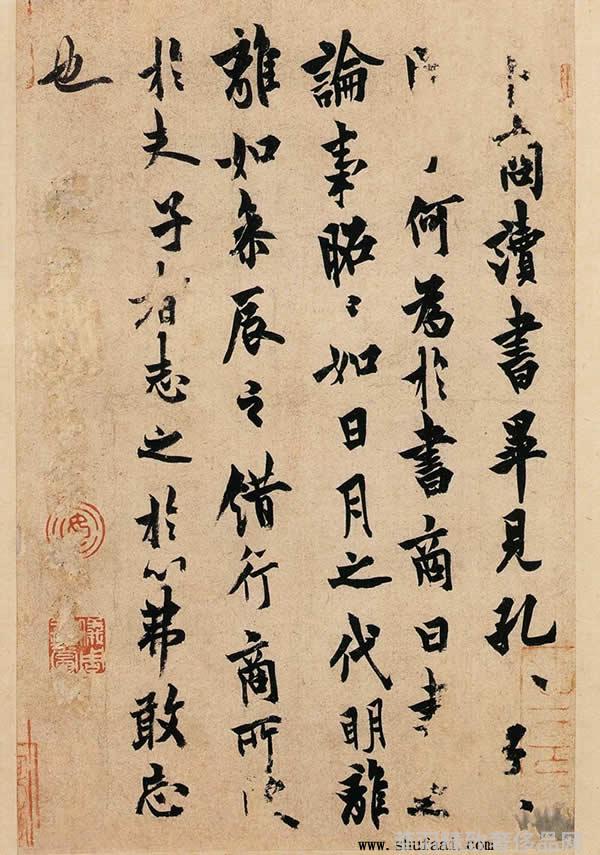 卜商讀書畢見孔〻子〻
何為於書商曰書之
論事昭〻如日月之代明離
離如參辰之錯行商所受
於夫子者志之於心弗敢忘
也
www.shufaai.com
奢侈品网